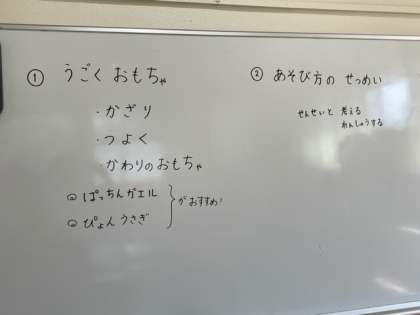 ① うごく おもちゃ
・かざり
・つよく
・かわりのおもちゃ
ぱっちんガエル
ぴょんうさぎ
がおすすめ!
② あそび方の せつめい
せんせいと 考える
れんしゅうする